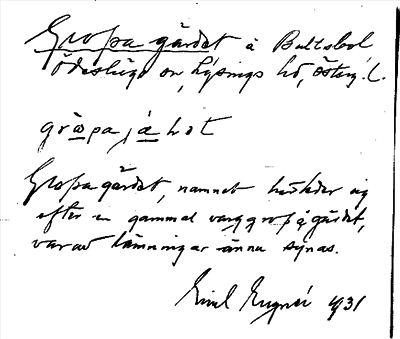 Gropa gärdet å Bultsbol
Ödeshögs sn, Lysings hd, Österg. l.
grøpa jæ̱ḻet
Gropagärdet, namnet härleder sig
efter en gammal varggrop å gärdet,
varav lämningar ännu synas.
Emil 1931